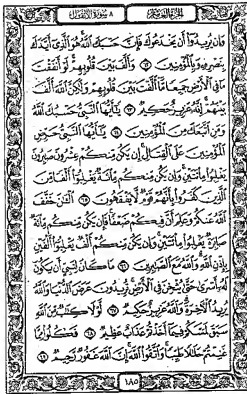 الجزء العاشر ٨ سورة الأنفال
وَإِن يُرِيدُوٓا۟ أَن يَخْدَعُوكَ فَإِنَّ حَسْبَكَ ٱللَّهُ هُوَ ٱلَّذِىٓ أَيَّدَكَ
بِنَصْرِهِۦ وَبِٱلْمُؤْمِنِينَ ٦٢ وَأَلَّفَ بَيْنَ قُلُوبِهِمْ لَوْ أَنفَقْتَ
مَا فِى ٱلْأَرْضِ جَمِيعًا مَّآ أَلَّفْتَ بَيْنَ قُلُوبِهِمْ وَلَٰكِنَّ ٱللَّهَ أَلَّفَ
بَيْنَهُمْ إِنَّهُۥ عَزِيزٌ حَكِيمٌ ٦٣ يَٰٓأَيُّهَا ٱلنَّبِىُّ حَسْبُكَ ٱللَّهُ
وَمَنِ ٱتَّبَعَكَ مِنَ ٱلْمُؤْمِنِينَ ٦٤ يَٰٓأَيُّهَا ٱلنَّبِىُّ حَرِّضِ
ٱلْمُؤْمِنِينَ عَلَى ٱلْقِتَالِ إِن يَكُن مِّنكُمْ عِشْرُونَ صَٰبِرُونَ
يَغْلِبُوا۟ مِا۟ئَتَيْنِ وَإِن يَكُن مِّنكُم مِّا۟ئَةٌ يَغْلِبُوٓا۟ أَلْفًا مِّنَ
ٱلَّذِينَ كَفَرُوا۟ بِأَنَّهُمْ قَوْمٌ لَّا يَفْقَهُونَ ٦٥ ٱلْـَٰٔنَ خَفَّفَ
ٱللَّهُ عَنكُمْ وَعَلِمَ أَنَّ فِيكُمْ ضَعْفًا فَإِن يَكُن مِّنكُم مِّا۟ئَةٌ
صَابِرَةٌ يَغْلِبُوا۟ مِا۟ئَتَيْنِ وَإِن يَكُن مِّنكُمْ أَلْفٌ يَغْلِبُوٓا۟ أَلْفَيْنِ
بِإِذْنِ ٱللَّهِ وَٱللَّهُ مَعَ ٱلصَّٰبِرِينَ ٦٦ مَا كَانَ لِنَبِىٍّ أَن يَكُونَ
لَهُۥٓ أَسْرَىٰ حَتَّىٰ يُثْخِنَ فِى ٱلْأَرْضِ تُرِيدُونَ عَرَضَ ٱلدُّنْيَا وَٱللَّهُ
يُرِيدُ ٱلْءَاخِرَةَ وَٱللَّهُ عَزِيزٌ حَكِيمٌ ٦٧ لَّوْلَا كِتَٰبٌ مِّنَ ٱللَّهِ
سَبَقَ لَمَسَّكُمْ فِيمَآ أَخَذْتُمْ عَذَابٌ عَظِيمٌ ٦٨ فَكُلُوا۟ مِمَّا
غَنِمْتُمْ حَلَٰلًا طَيِّبًا وَٱتَّقُوا۟ ٱللَّهَ إِنَّ ٱللَّهَ غَفُورٌ رَّحِيمٌ ٦٩
١٨٥